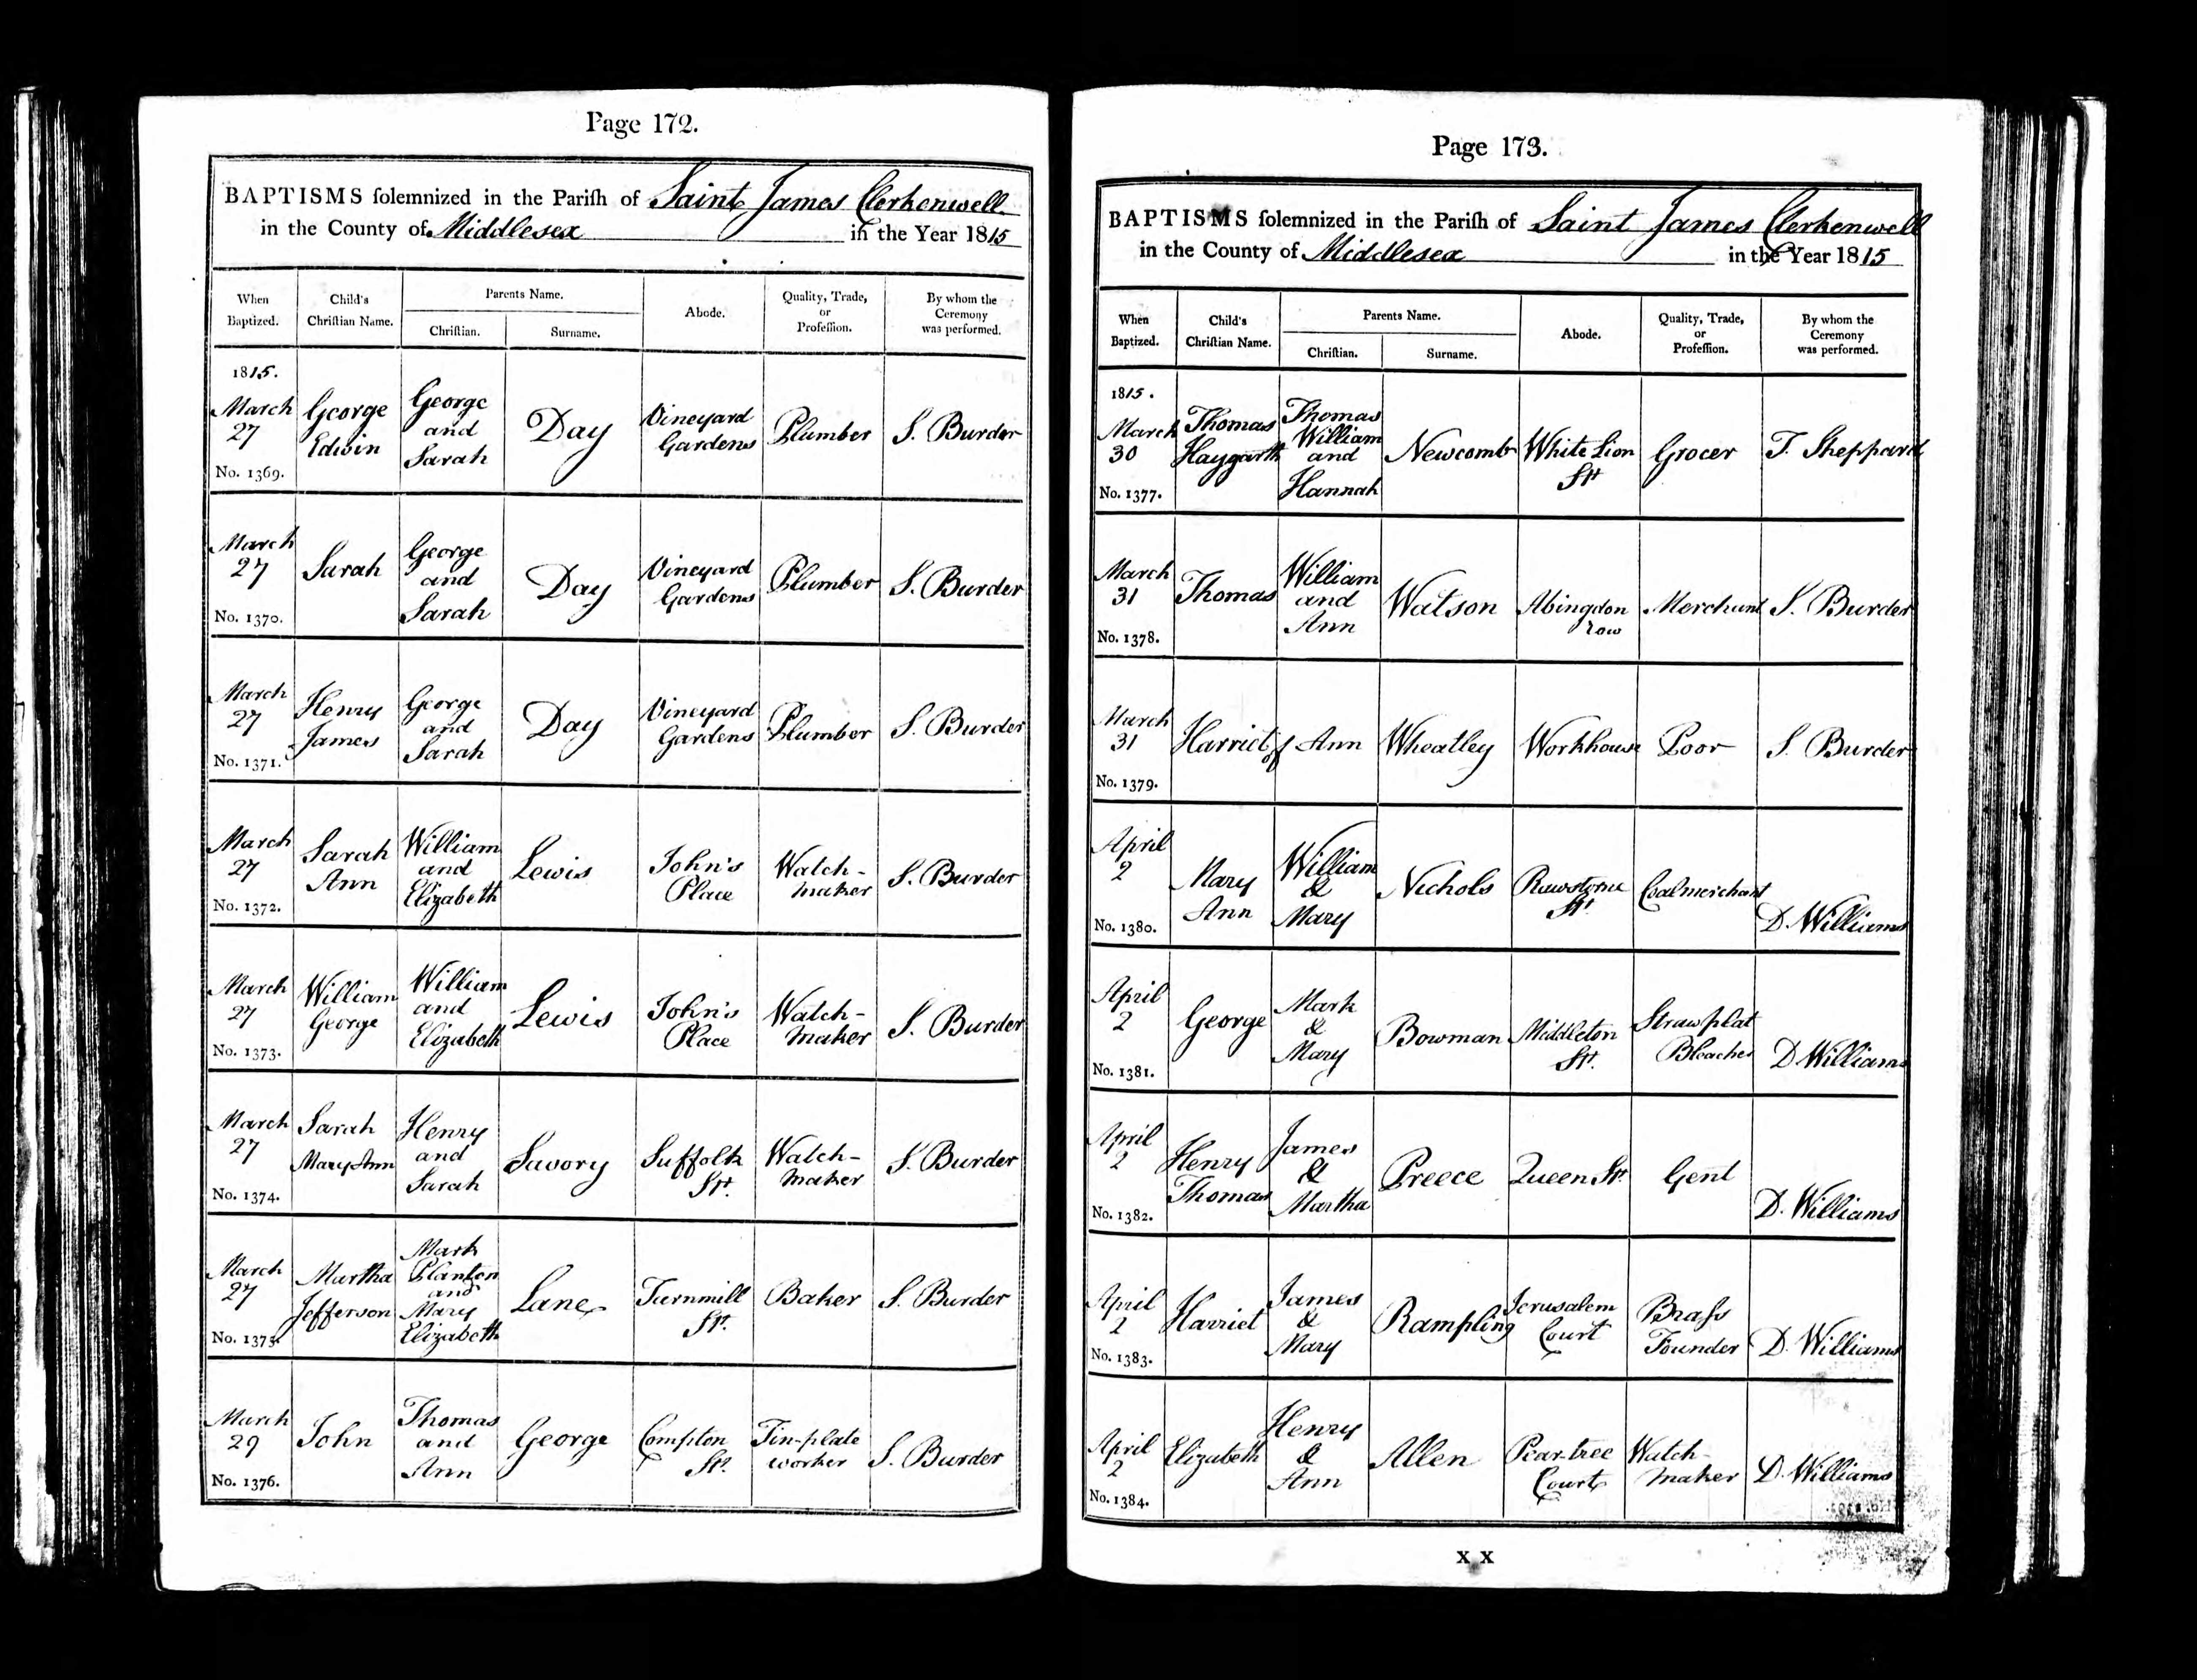 Page 172.
BAPTISMS ſolemnized in the Pariſh of Saint James Clerkenwell
in the County of Middlesex in the Year 1815
When Baptized. Child's Chriſtian Name. Parents Name. Chriſtian. Surname. Abode. Quality, Trade, or Profeſſion. By whom the Ceremony was performed.
1815.
March 27 George Edwin George and Sarah Day Vineyard Gardens Plumber S. Burder
No. 1369.
March 27 Sarah George and Sarah Day Vineyard Gardens Plumber S. Burder
No. 1370.
March 27 Henry James George and Sarah Day Vineyard Gardens Plumber S. Burder
No. 1371.
March 27 Sarah Ann William and Elizabeth Lewis John's Place Watch-maker S. Burder
No. 1372.
March 27 William George William and Elizabeth Lewis John's Place Watch-maker S. Burder
No. 1373.
March 27 Sarah Mary Ann Henry and Sarah Savory Suffolk St. Watch-maker S. Burder
No. 1374.
March 27 Martha Jefferson Mark Planton and Mary Elizabeth Lane Turnmill St. Baker S. Burder
No. 1375.
March 29 John Thomas and Ann George Compton St. Tin-plate worker S. Burder
No. 1376.
Page 173.
BAPTISMS ſolemnized in the Pariſh of Saint James Clerkenwell
in the County of Middlesex in the Year 1815
When Baptized. Child's Chriſtian Name. Parents Name. Chriſtian. Surname. Abode. Quality, Trade, or Profeſſion. By whom the Ceremony was performed.
1815.
March 30 Thomas Haygarth Thomas William and Hannah Newcomb White Lion St Grocer T. Sheppard
No. 1377.
March 31 Thomas William and Ann Watson Abingdon row Merchant S. Burder
No. 1378.
March 31 Harriet of Ann Wheatley Workhouse Poor S. Burder
No. 1379.
April 2 Mary Ann William & Mary Nichols Rawstorne St. Coalmerchant D. Williams
No. 1380.
April 2 George Mark & Mary Bowman Middleton St. Strawplat Bleacher D. Williams
No. 1381.
April 2 Henry Thomas James & Martha Preece Queen St. Gent D. Williams
No. 1382.
April 2 Harriet James & Mary Rampling Jerusalem Court Braſs Founder D. Williams
No. 1383.
April 2 Elizabeth Henry & Ann Allen Pear-tree Court Watch-maker D. Williams
No. 1384.
X X